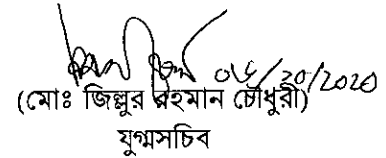 ০৬/১০/২০২০
(মোঃ জিল্লুর রহমান চৌধুরী)
যুগ্মসচিব